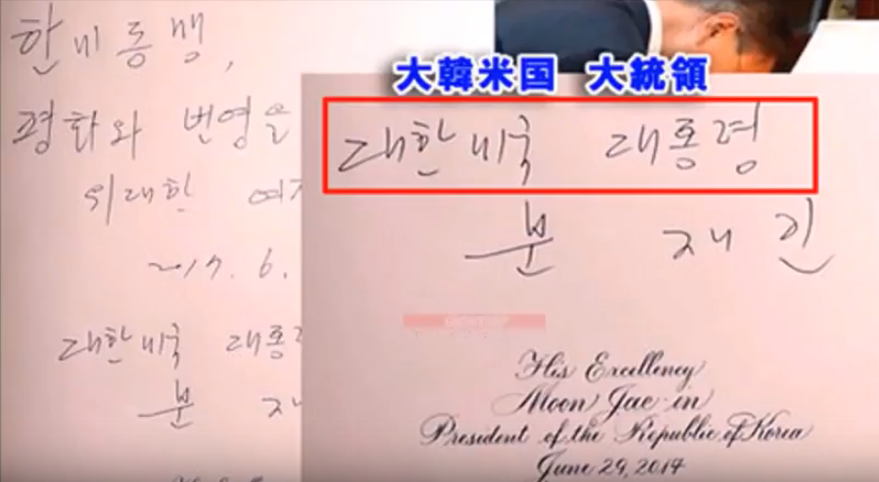 한미동맹,
평화와 번영을
위대한
2017. 6.
대한미국 대통령
문
大韓米国 大統領
대한미국 대통령
문 재 인
His Excellency
Moon Jae-in
President of the Republic of Korea
June 29, 2017